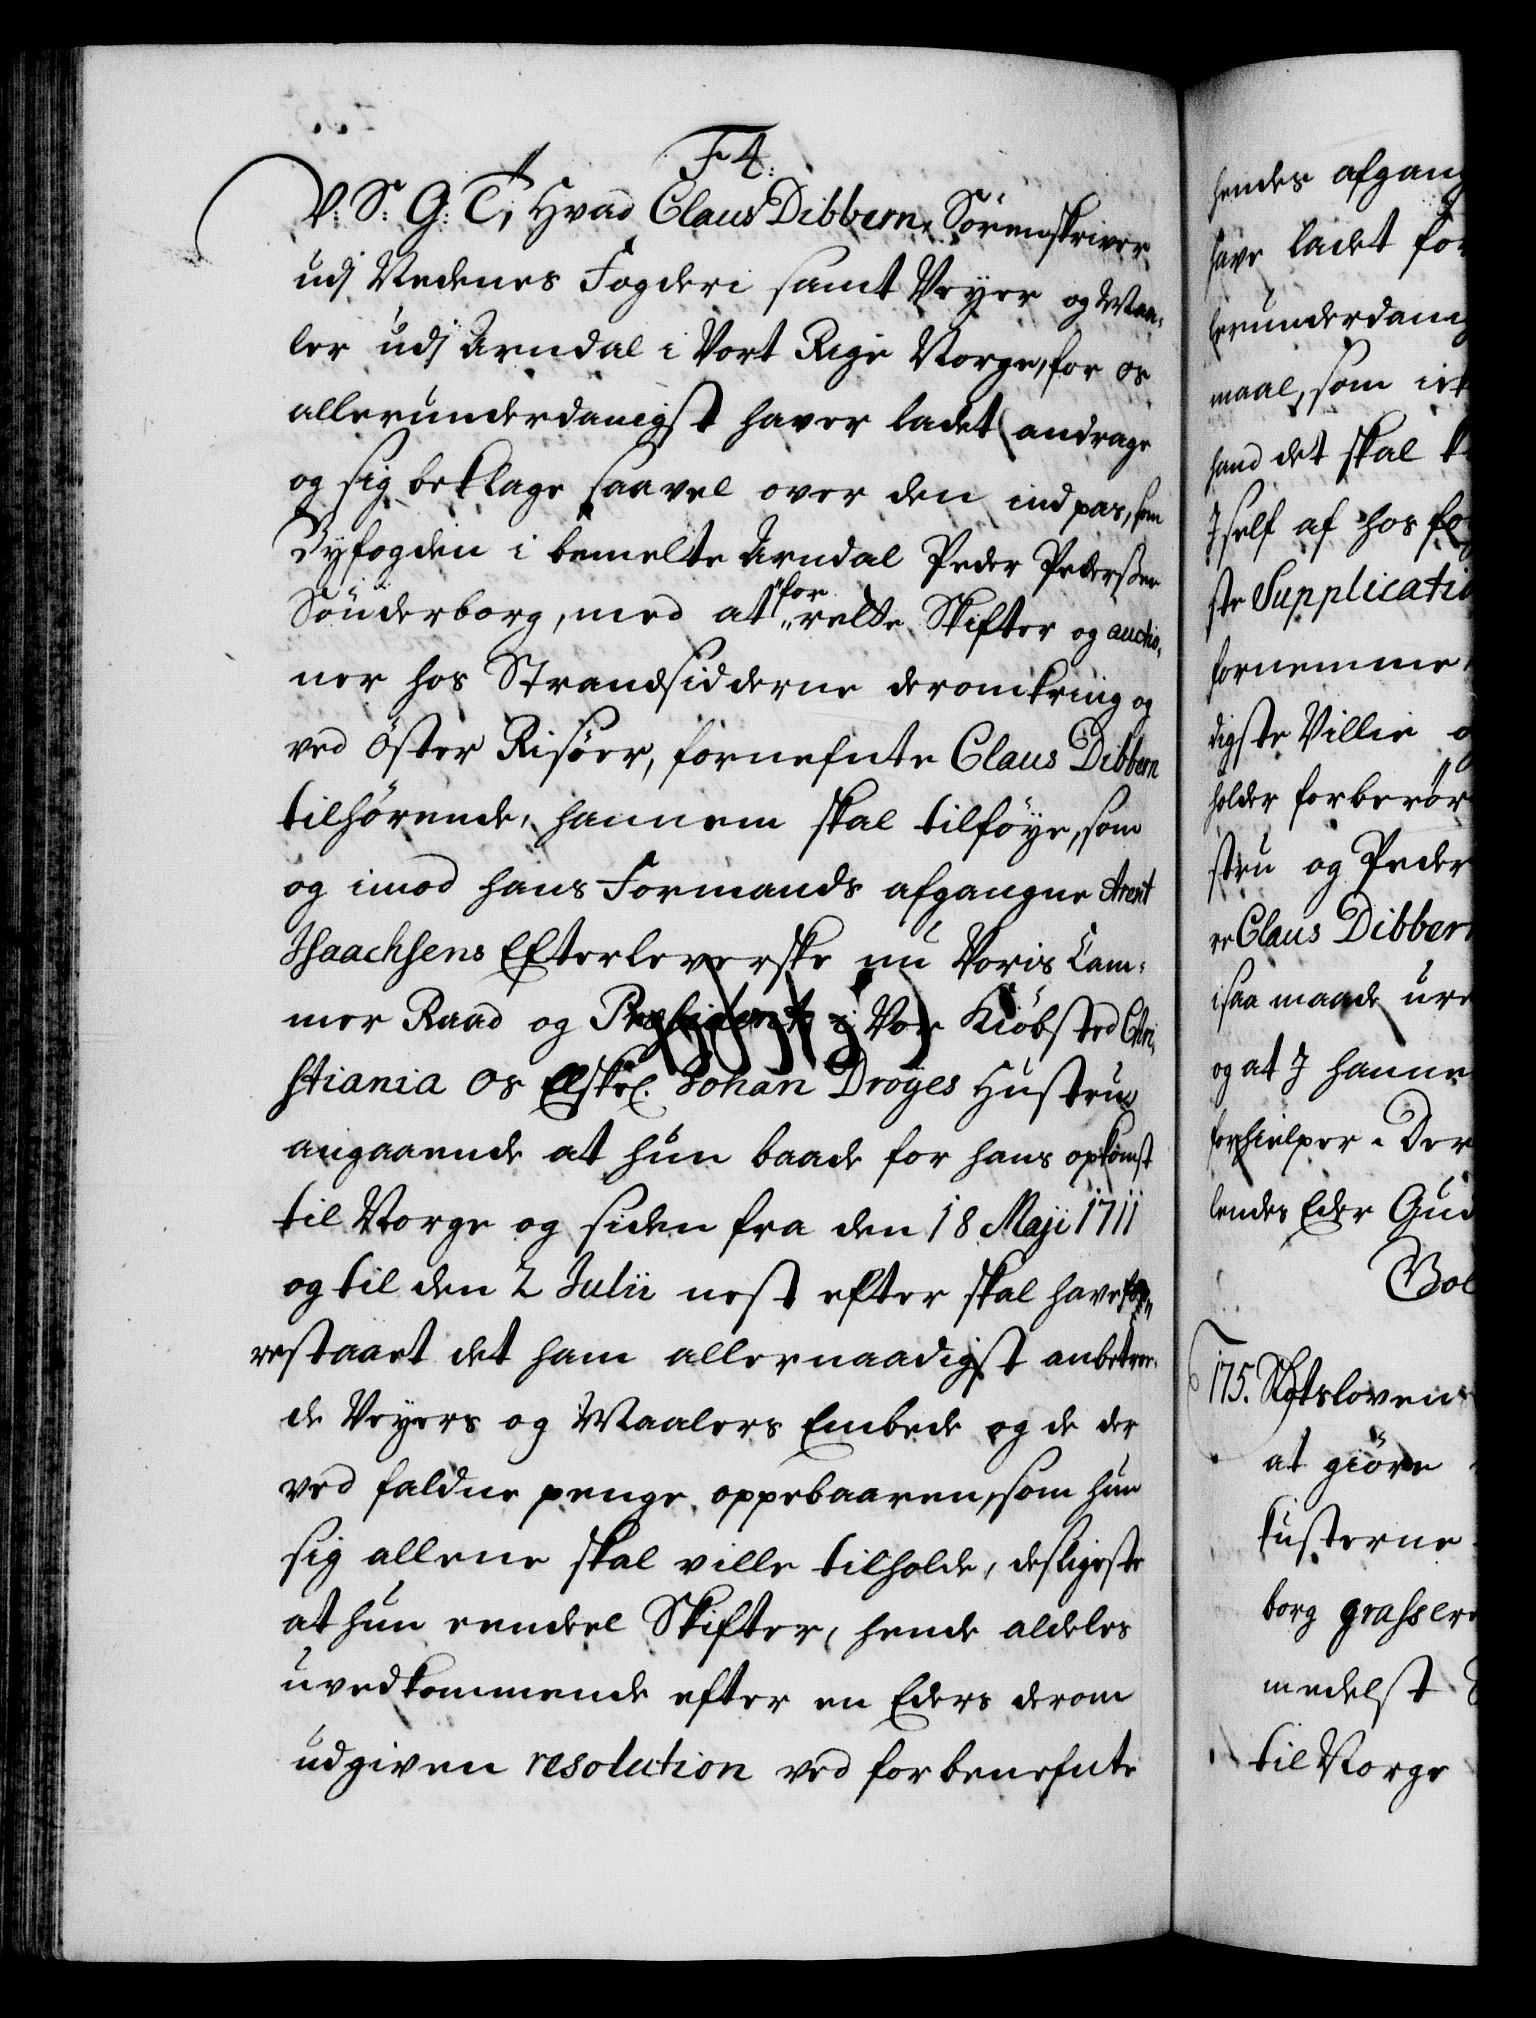 F 4.
V: S: G: T; Hvad Claus Dibbern, Sörenskriver
udj Nedenes Fogderi samt Veyer og Maa-
ler udj Arndal i Vort Rige Norge, for os
allerunderdanigst haver ladet andrage
og sig beklage saavel over den indpas, som
Byfogden i bemelte Arndal Peder Pedersen
Sönderborg, med at for rette Skifter og auctio-
ner hos Strandsidderne deromkring og
ved Öster Risöer, fornefnte Claus Dibbern
tilhörende, hannem skal tilföye, som
og imod hans Formands afgangne Arent
Isaachsens Efterleverske nu Voris Cam-
mer Raad og Præsident i Vor Kiöbsted Chri-
stiania os Elskel. Johan Dröyes Hustru
angaaende at hun baade for hans opkomst
til Norge og siden fra den 18 Maji 1711
og til den 2 Julii nest efter skal have for-
restaaet det ham allernaadigst anbetroe-
de Veyers og Maalers Embede og de der
ved faldne penge oppebaaren, som hun
sig allene skal ville tilholde, desligeste
at hun eendeel Skifter, hende aldeles
uvedkommende efter en Eders derom
udgiven resolution ved forbenefnte
hendes afgang
have ladet for
lerunderdanig
maal, som i
hand det skal
J self af hosfö
ste Supplicatio
fornemme
digste Villie
holder forberör
stru og Peder
re Claus Dibber
isaa maade
og at J hanne
forhielper. Der
lendes Eder Gud
175. Slotsloven
at giöre
kusterne
borg grasser
medelst
til Norge